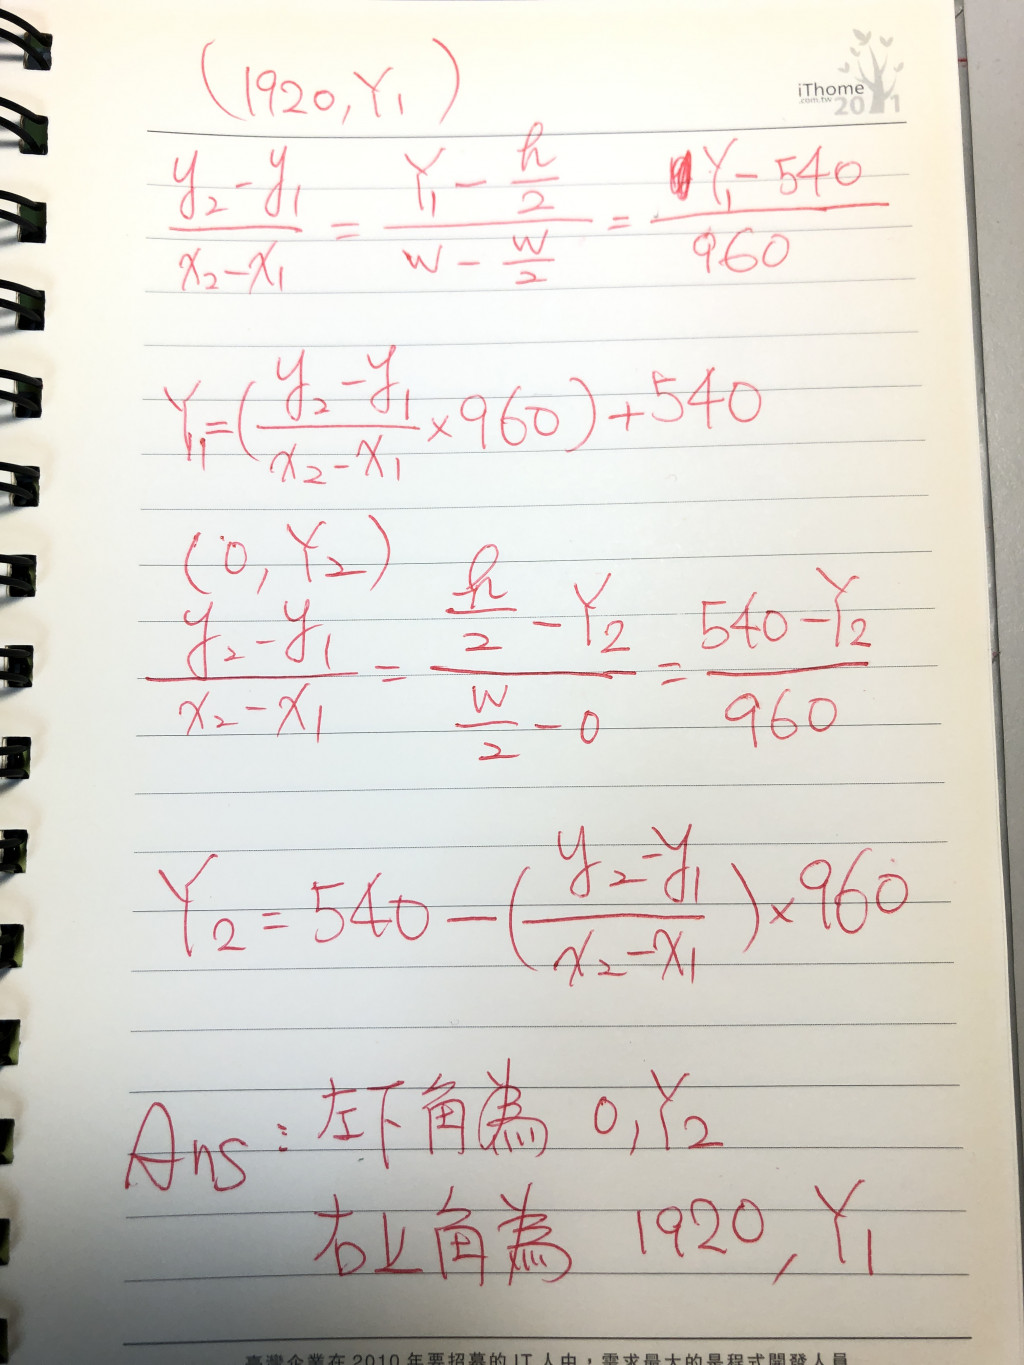 (1920, Y₁)
iThome
.com.tw
2011
(y₂-y₁)/(x₂-x₁) = (Y₁ - h/2)/(w - w/2) = (Y₁ - 540)/960
Y₁ = ((y₂-y₁)/(x₂-x₁) × 960) + 540
(0, Y₂)
(y₂-y₁)/(x₂-x₁) = (h/2 - Y₂)/(w/2 - 0) = (540 - Y₂)/960
Y₂ = 540 - ((y₂-y₁)/(x₂-x₁)) × 960
Ans: 左下角為 0, Y₂
右上角為 1920, Y₁
臺灣企業在 2010 年要招募的 IT 人中,需求最大的是程式開發人員